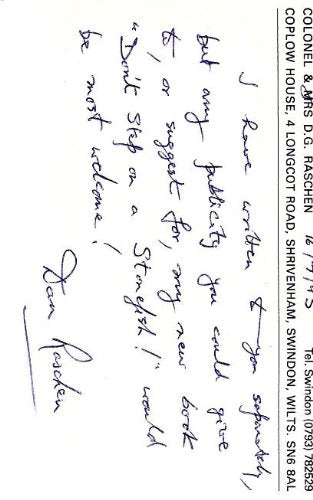 COLONEL & MRS D.G. RASCHEN Tel. Swindon (0793) 782529
COPLOW HOUSE, 4 LONGCOT ROAD, SHRIVENHAM, SWINDON, WILTS. SN6 8AL
I have written to you separately,
but any publicity you could give
to, or suggest for, my new book
"Don't Step on a Stonefish!" would
be most welcome!
Dan Raschen